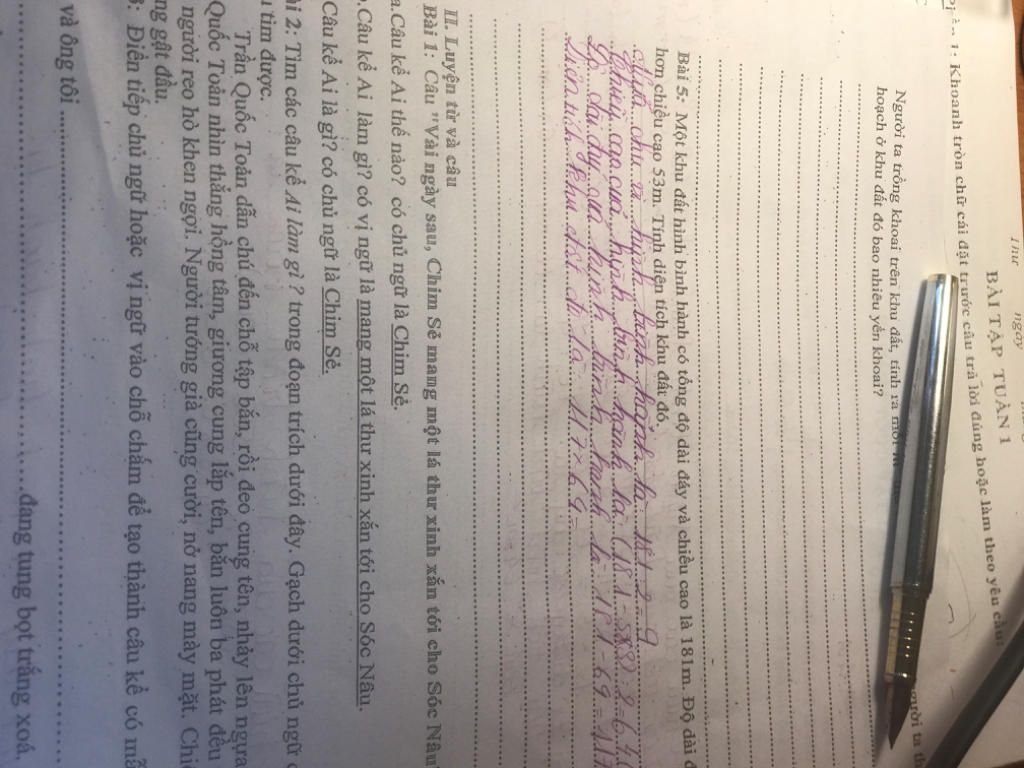 Thứ ngày
BÀI TẬP TUẦN 1
1: Khoanh tròn chữ cái đặt trước câu trả lời đúng hoặc làm theo yêu cầu:
Người ta trồng khoai trên khu đất, tính ra
hoạch ở khu đất đó bao nhiêu yến khoai?
Bài 5: Một khu đất hình bình hành có tổng độ dài đáy và chiều cao là 181m. Độ dài
hơn chiều cao 53m. Tính diện tích khu đất đó.
chu vi hình bình hành là 181 2 = 9
Chiều cao của hình bình hành là (181 - 53) : 2 = 64
Độ dài đáy của hình bình hành là 181 - 69 = 117
Diện tích khu đất đó là 117 × 69 =
II. Luyện từ và câu
Bài 1: Câu "Vài ngày sau, Chim Sẻ mang một lá thư xinh xắn tới cho Sóc Nâu
a.Câu kể Ai thế nào? có chủ ngữ là Chim Sẻ.
.Câu kể Ai làm gì? có vị ngữ là mang một lá thư xinh xắn tới cho Sóc Nâu.
Câu kể Ai là gì? có chủ ngữ là Chim Sẻ.
2: Tìm các câu kể Ai làm gì? trong đoạn trích dưới đây. Gạch dưới chủ ngữ
tìm được.
Trần Quốc Toản dẫn chú đến chỗ tập bắn, rồi đeo cung tên, nhảy lên ngựa
Quốc Toản nhìn thẳng hồng tâm, giương cung lắp tên, bắn luôn ba phát đều
người reo hò khen ngợi. Người tướng già cũng cười, nở nang mày mặt.
gật đầu.
3. Điền tiếp chủ ngữ hoặc vị ngữ vào chỗ chấm để tạo thành câu kể có
và ông tôi
đang tung bọt trắng xoá.